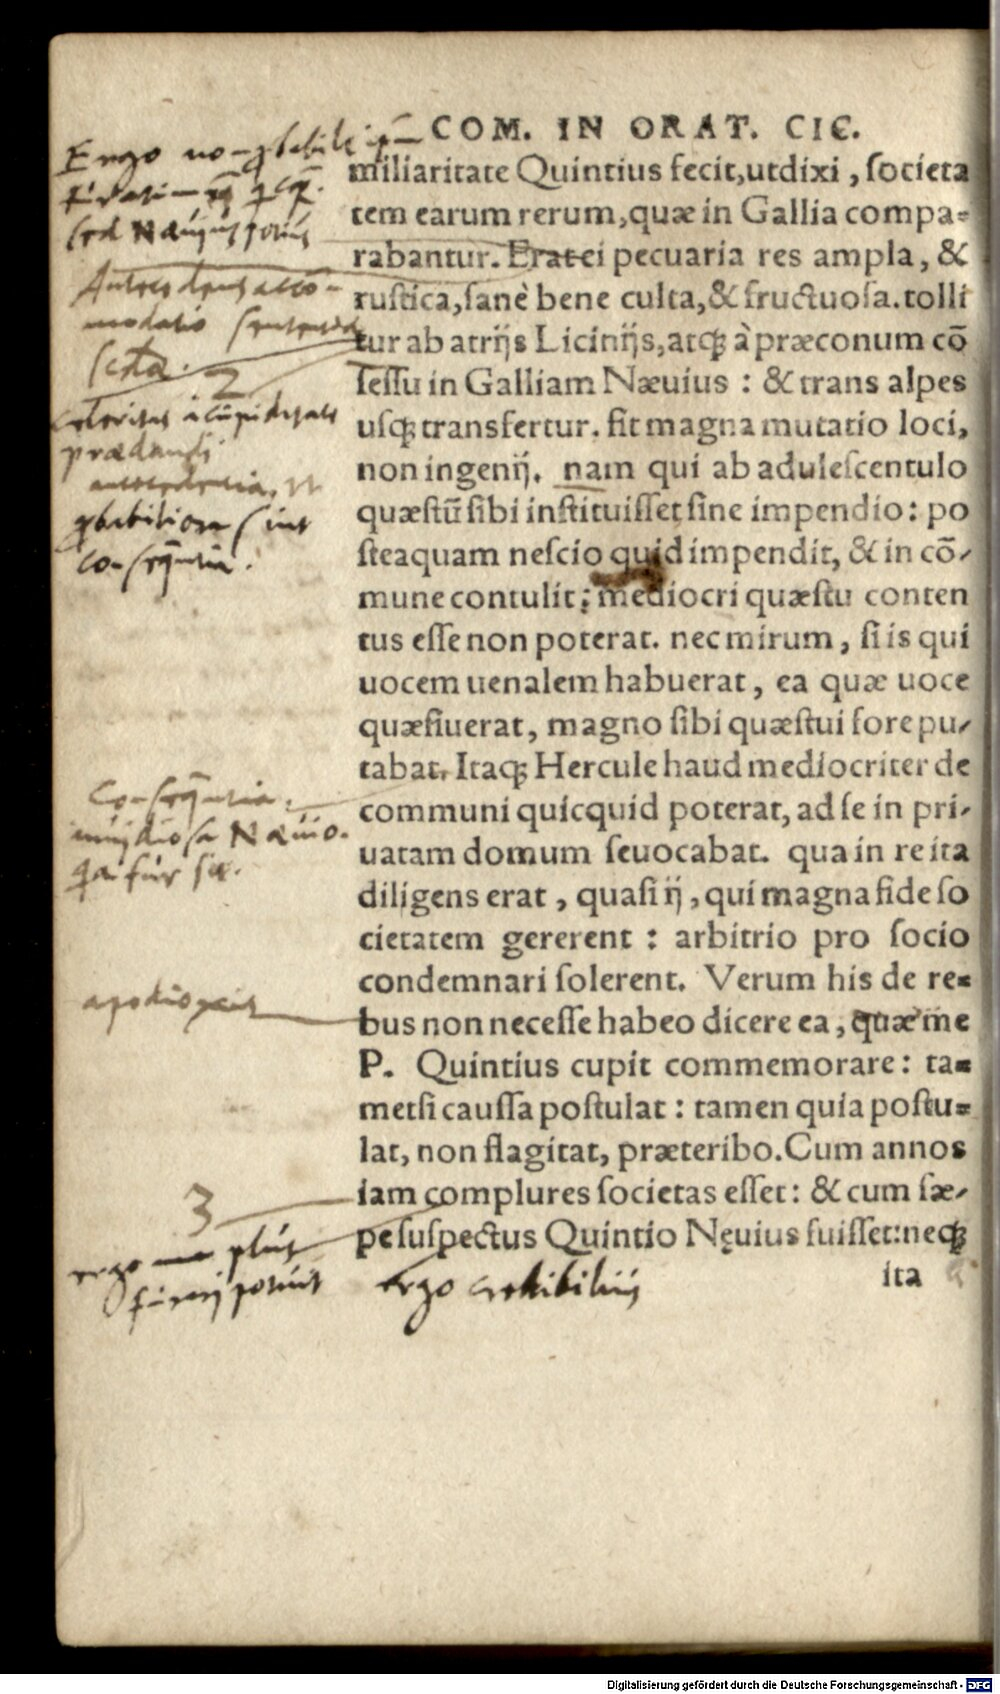 COM. IN ORAT. CIC.
miliaritate Quintius fecit, ut dixi, ſocieta
tem earum rerum, quæ in Gallia compa=
rabantur. Erat ei pecuaria res ampla, &
ruſtica, ſanè bene culta, & fructuoſa. tolli
tur ab atrijs Licinijs, atqꝫ à præconum cō
ſeſſu in Galliam Næuius : & trans alpes
uſqꝫ transfertur. fit magna mutatio loci,
non ingenij. nam qui ab adulescentulo
quæſtū ſibi inſtituiſſet ſine impendio: po
ſteaquam neſcio quid impendit, & in cō-
mune contulit; mediocri quæſtu conten
tus eſſe non poterat. nec mirum, ſi is qui
uocem uenalem habuerat, ea quæ uoce
quæſiuerat, magno ſibi quæſtui fore pu-
tabat. Itaqꝫ Hercule haud mediocriter de
communi quicquid poterat, ad ſe in pri-
uatam domum ſeuocabat. qua in re ita
diligens erat, quaſi ij, qui magna fide ſo
cietatem gererent : arbitrio pro ſocio
condemnari ſolerent. Verum his de re=
bus non neceſſe habeo dicere ea, quæ me
P. Quintius cupit commemorare: ta=
metſi cauſſa poſtulat: tamen quia poſtu=
lat, non flagitat, præteribo. Cum annos
iam complures ſocietas eſſet: & cum ſæ-
pe ſuſpectus Quintio Nęuius fuiſſet: neqꝫ
ita
Ergo
ſed Næuius potius
Antecedens acco-
modatio
2
celeritas a cupiditate
prædandi
antecedentia, ut
ꝓbabiliora ſint
conſequentia.
Conſequentia
inuidioſa Næuio.
apodioxis
3
ergo plus
furari potuit
ergo credibilius
Digitalisierung gefördert durch die Deutsche Forschungsgemeinschaft - DFG